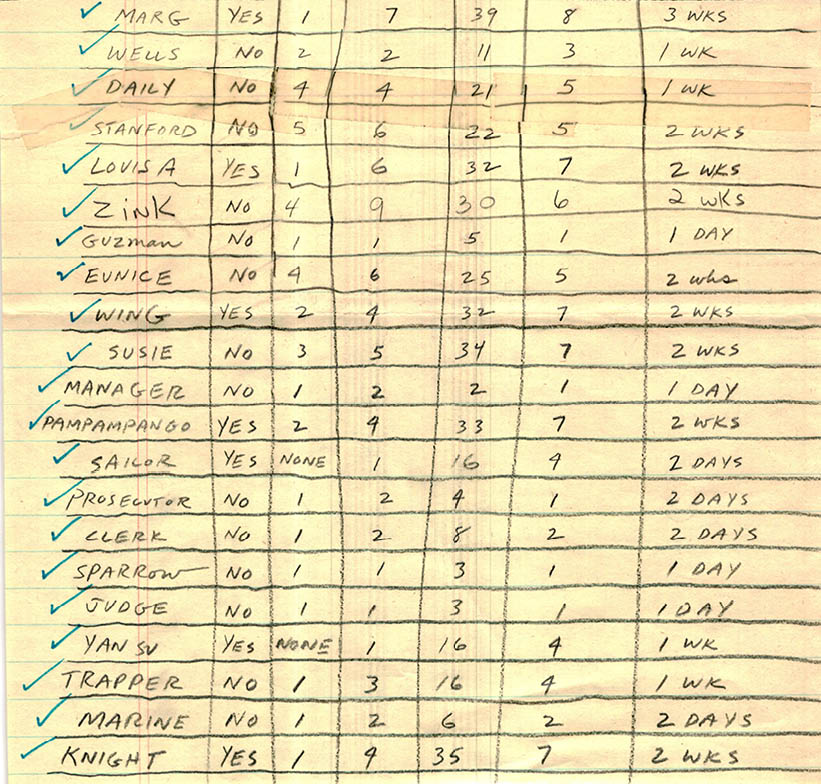 MARG YES 1 7 39 8 3 WKS
WELLS NO 2 2 11 3 1 WK
DAILY NO 4 4 21 5 1 WK
STANFORD NO 5 6 22 5 2 WKS
LOUISA YES 1 6 32 7 2 WKS
ZiNK NO 4 9 30 6 2 WKS
Guzman NO 1 1 5 1 1 DAY
EUNICE NO 4 6 25 5 2 wks
WING YES 2 4 32 7 2 WKS
SUSIE NO 3 5 34 7 2 WKS
MANAGER NO 1 2 2 1 1 DAY
PAMPAMPANGO YES 2 4 33 7 2 WKS
SAILOR YES NONE 1 16 4 2 DAYS
PROSECUTOR NO 1 2 4 1 2 DAYS
CLERK NO 1 2 8 2 2 DAYS
SPARROW NO 1 1 3 1 1 DAY
JUDGE NO 1 1 3 1 1 DAY
YAN SU YES NONE 1 16 4 1 WK
TRAPPER NO 1 3 16 4 1 WK
MARINE NO 1 2 6 2 2 DAYS
KNIGHT YES 1 4 35 7 2 WKS